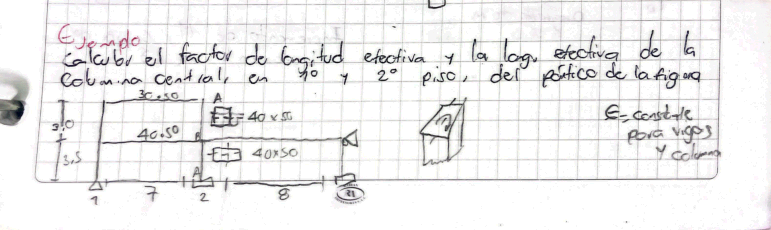 Ejemplo
Calcular el factor de longitud efectiva y la long. efectiva de la
columna central, en 1º y 2º piso, del pórtico de la figura
30.50
A
= 40 x 50
E = constante
para vigas
y columna
3.0
40.50
B
3.5
40x50
A
7
8
1
2